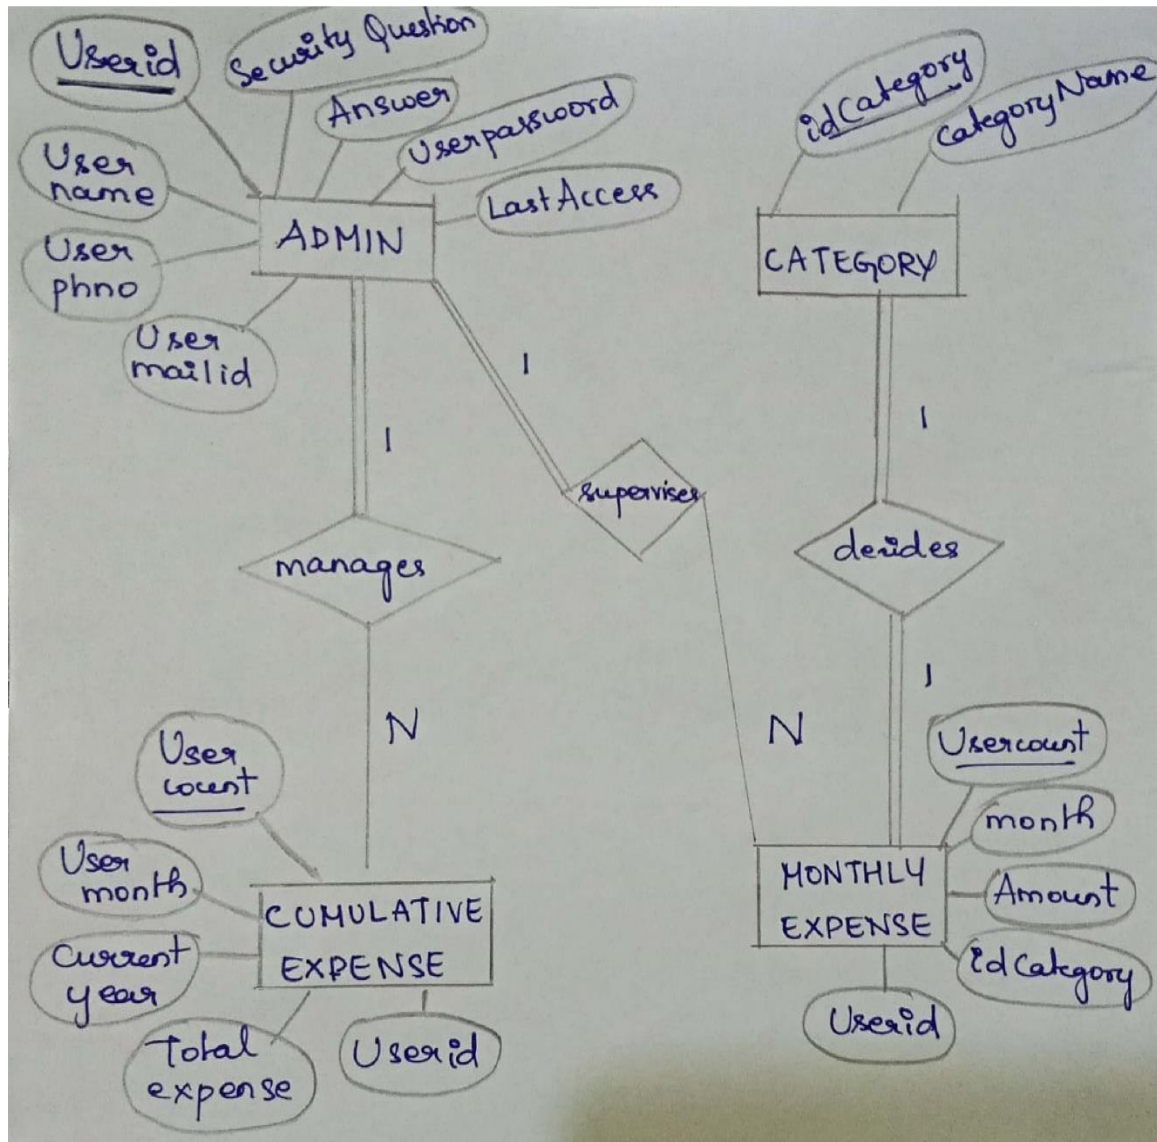 Userid
Security Question
Answer
Userpassword
LastAccess
User
name
User
phno
User
mailid
ADMIN
idCategory
CategoryName
CATEGORY
1
1
1
supervises
manages
decides
1
N
N
User
count
User
month
Current
year
Total
expense
Userid
CUMULATIVE
EXPENSE
Usercount
month
Amount
idCategory
Userid
MONTHLY
EXPENSE